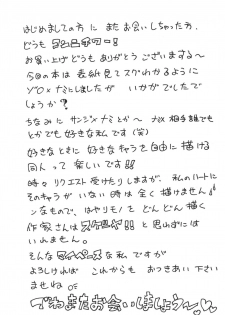 はじめましての方に またお会いしちゃった方.
どうも
お買い上げどうも ありがとう ございます〜
今回の本は 表紙見てスグわかるように
ゾロ×ナミにしましたが いかがでしたで
しょうか?
ちなみに サンジ×ナミとか〜 ナミ×相手誰でも
とかでも 好きな私です(笑)
好きなときに 好きなキャラを自由に描ける
同人って 楽しいです!!
時々 リクエスト受けたりしますが、私のハートに
そのキャラが いない時は 全く描けません!
ンなもので、はやりモノを どんどん描く
作家さんは スゲェ!! と思わずには
いれません。
そんな マイペースな 私 ですが
よろしければ これからも おつきあい 下さい
ませね
でわまたお会いしましょう〜